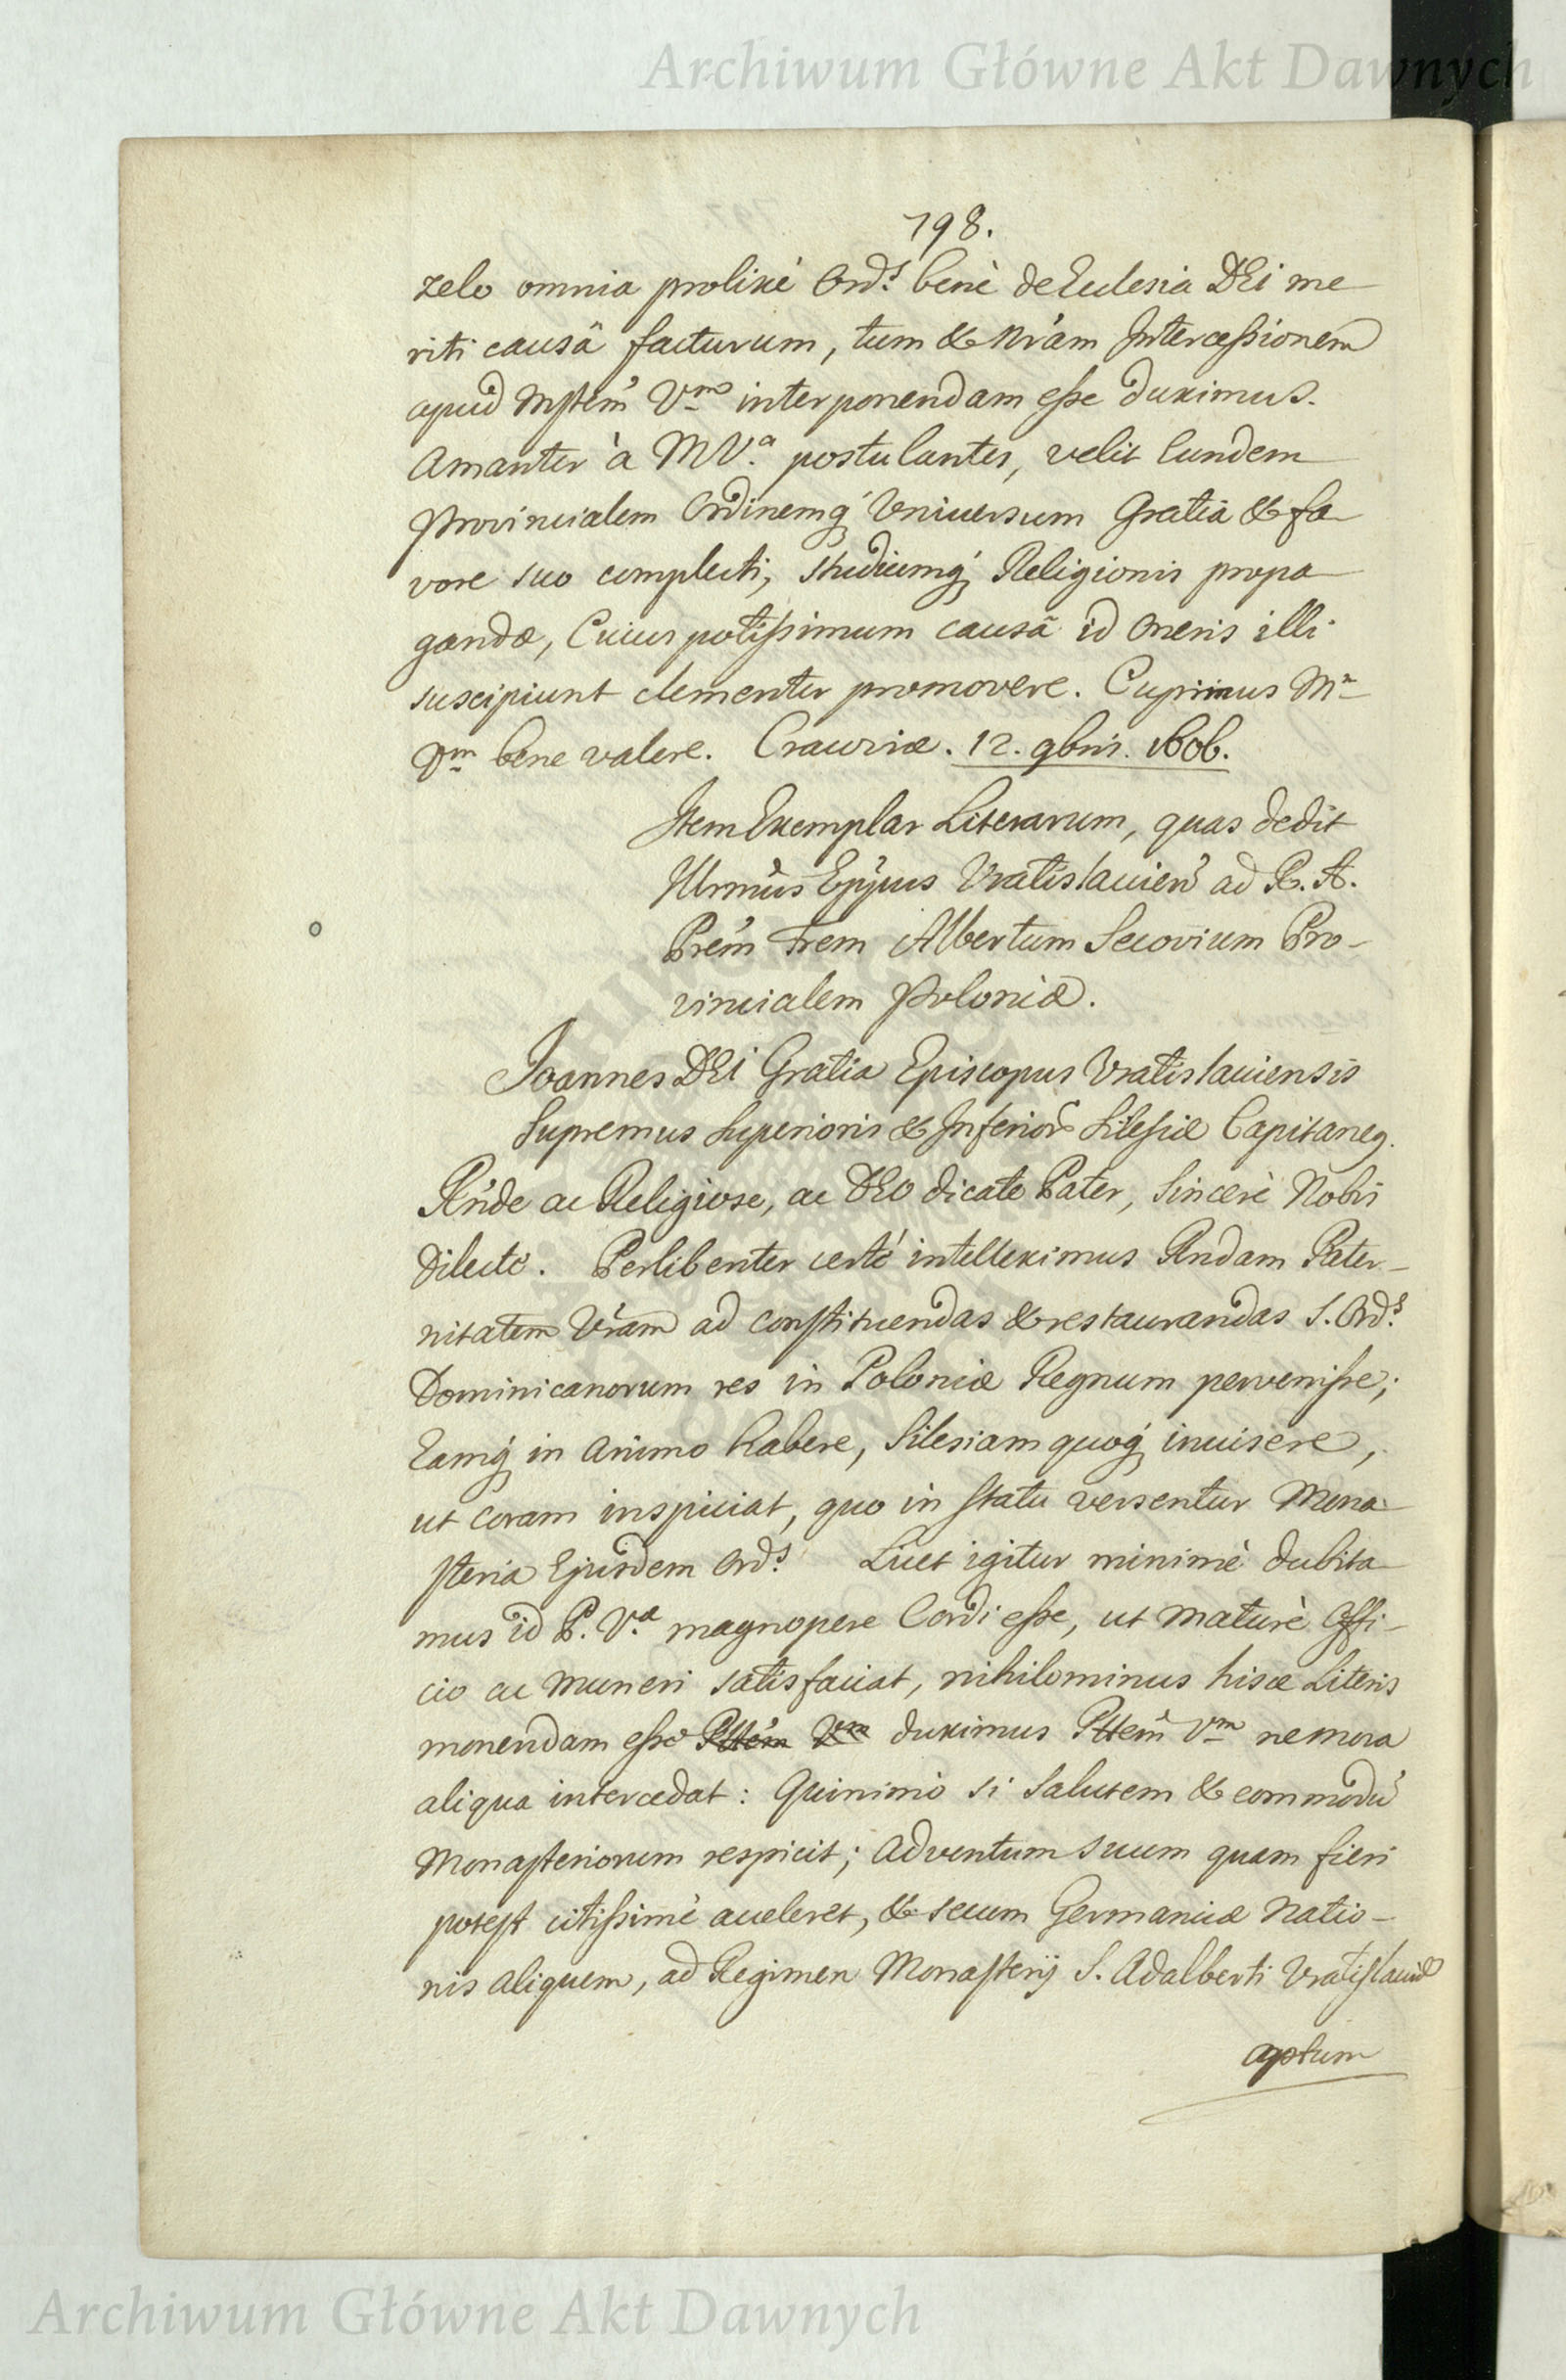 Archiwum Główne Akt Dawnych
798.
zelo omnia prolixè Ord.s benè de Ecclesia DEi me
riti causâ facturum, tum & Nrám Intercessionem
apud Mstem̃ V.m interponendam esse duximus.
Amanter à M V.a postulantes, velit Eundem
Provincialem Ordinemq́ Vniuersum Gratiâ & fa
vore suo complecti, studiumq́ Religionis propa
gandæ, Cuius potissimum causâ id oneris illi
suscipiunt clementer promovere. Cupimus M.
V.m bene valere. Cracoviæ. 12. 9bris. 1606.
Item Exemplar Literarum, quas dedit
Illrmus Eppus Vratislauien̄ ad R. A.
Prem̃ Frem Albertum Secovium Pro-
vincialem Poloniæ.
Joannes DEI Gratia Episcopus Vratislauiensis
Supremus Superioris & Inferioris Silesiæ Capitaneg.
Rńde ac Religiose, ac DEO dicate Pater, Sincerè Nobis
Dilecte. Perlibenter certé intelleximus Rndam Pater-
nitatem Vrám ad constituendas & restaurandas S. Ord.s
Dominicanorum res in Poloniæ Regnum pervenisse;
Eamq́ in animo habere, Silesiam quoq́ inuisere,
ut coram inspiciat, quo in statu versentur Mona
steria Ejusdem Ord.s Licet igitur minimè dubita
mus id P. V.æ magnopere Cordi esse, ut maturè Offi-
cio ac muneri satisfaciat, nihilominus hisce Literis
monendam esse Pttem̃ V.m duximus Pttem̃ V.m ne mora
aliqua intercedat: Quinimò si Salutem & commodũ
Monasteriorum respicit; adventum suum quam fieri
potest citissimè acceleret, & secum Germanicæ Natio-
nis aliquem, ad Regimen Monasterij S. Adalberti Vratislauiæ
aptum
Archiwum Główne Akt Dawnych